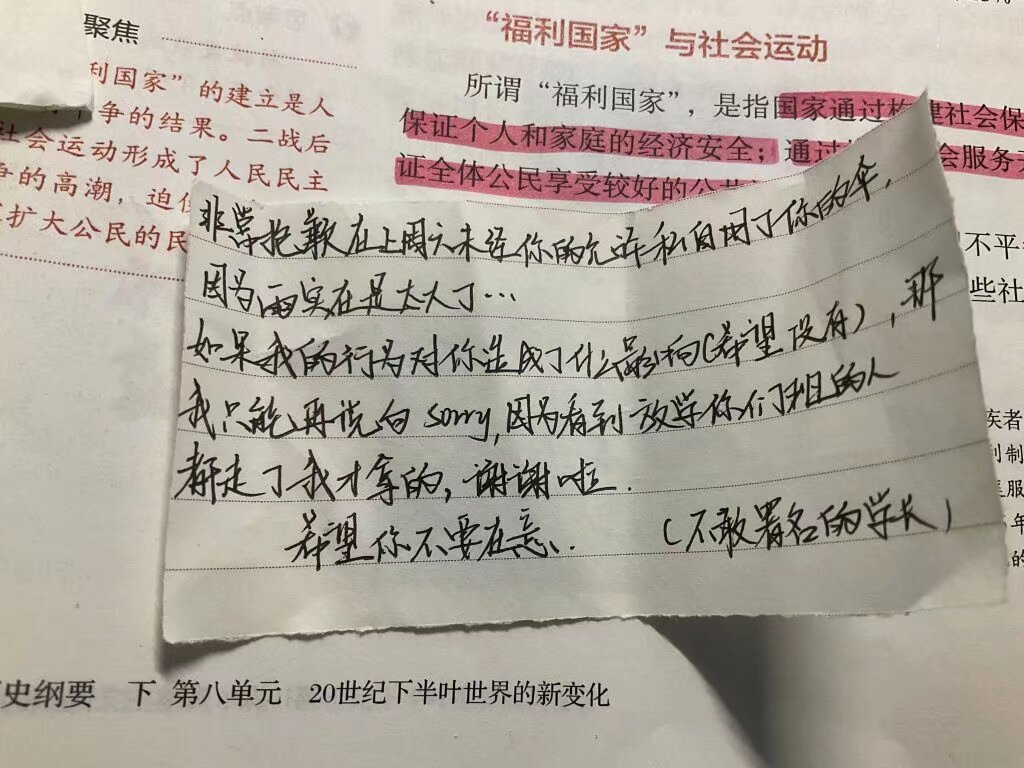 聚焦
“福利国家”与社会运动
利国家”的建立是人
争的结果。二战后
社会运动形成了人民民主
争的高潮，迫使
扩大公民的民
所谓“福利国家”，是指国家通过构建社会保
保证个人和家庭的经济安全；通过 会服务
证全体公民享受较好的公共
不平
些社
族者
利制
服
年
的
非常抱歉在上周六未经你的允许私自用了你的伞，
因为雨实在是太大了…
如果我的行为对你造成了什么影响（希望没有），那
我只能再说句sorry，因为看到放学你们班的人
都走了我才拿的，谢谢啦．
希望你不要在意．（不敢署名的学长）
史纲要 下 第八单元 20世纪下半叶世界的新变化